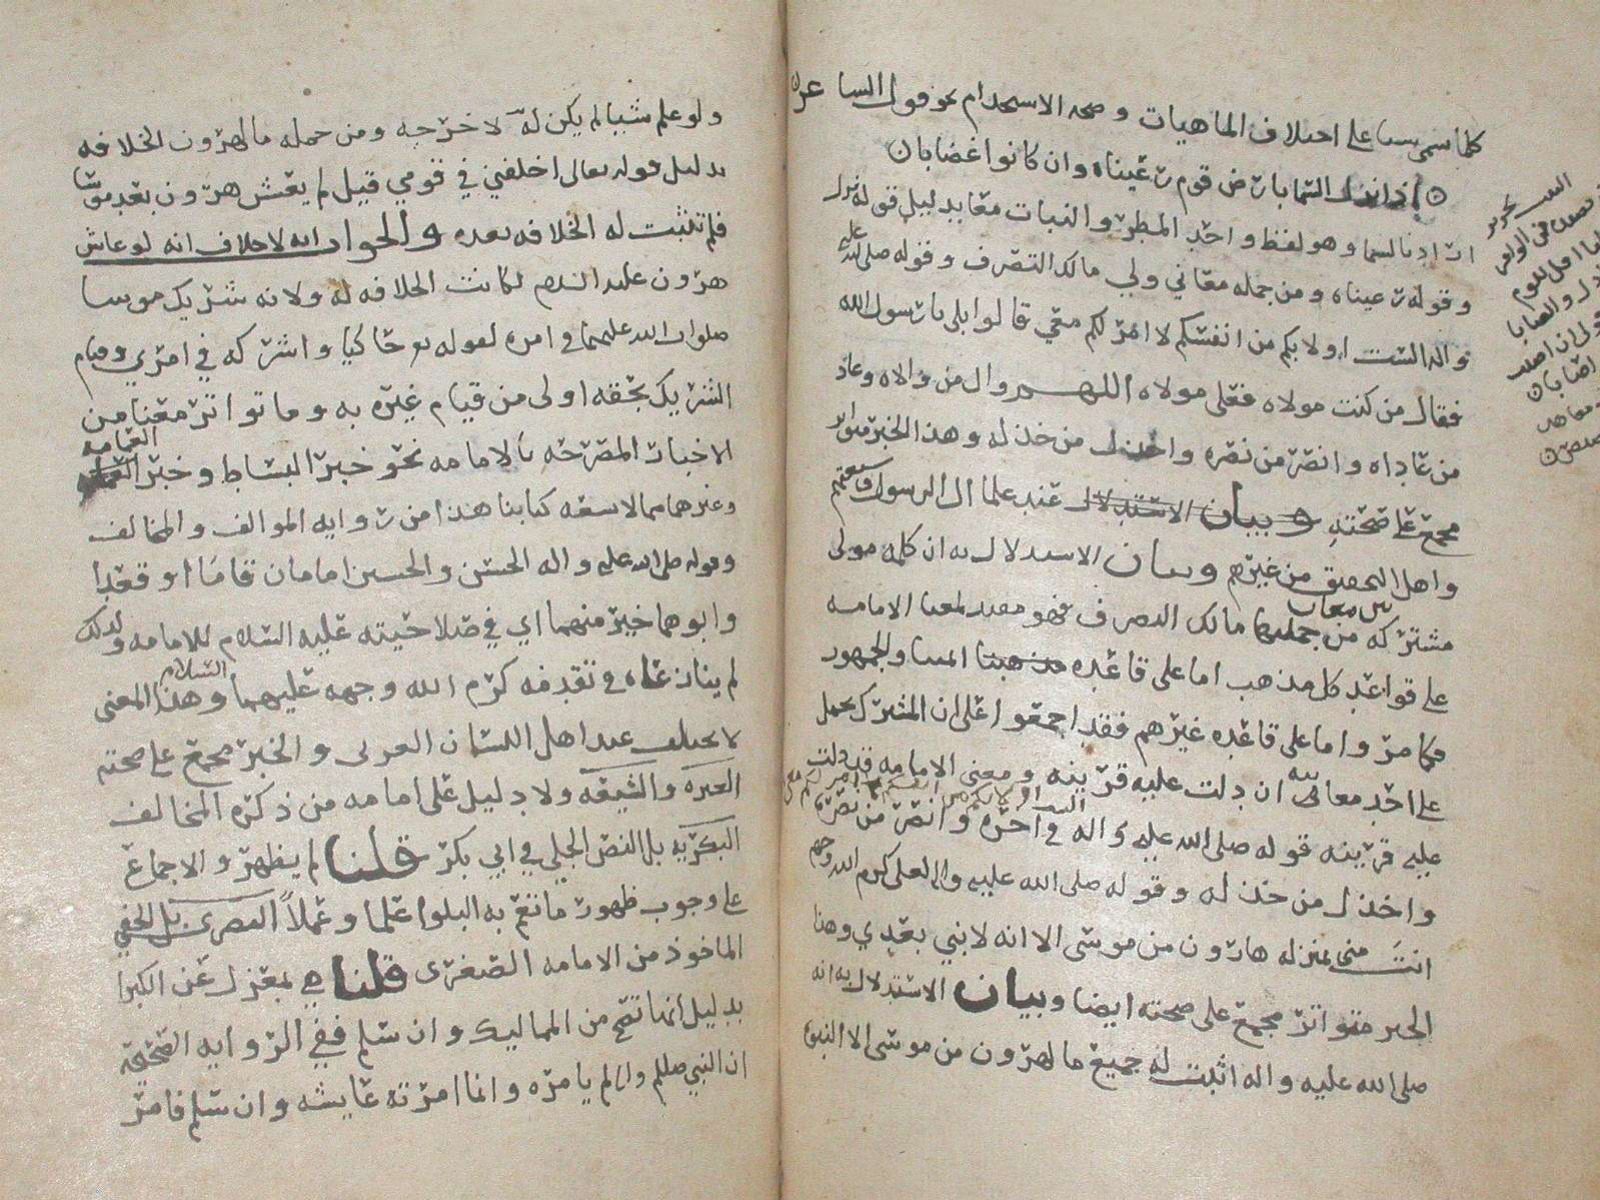 كلما سمى سببا على اختلاف الماهيات وصحه الاستخدام نحو قول الشاعر
اذا نزل السما بارض قوم رعيناه وان كانوا غضابا
اراد بالسما وهو لفظ واحد المطر والنبات معا بدليل قوله نزل
وقوله رعيناه ومن جمله معاني ولي مالك التصرف وقوله صلى الله عليه
واله الست اولا بكم من انفسكم لا امر لكم معي قالوا بلى يا رسول الله
فقال من كنت مولاه فعلي مولاه اللهم وال من والاه وعاد
من عاداه وانصر من نصره واخذل من خذله وهذا الخبر متواتر
مجمع على صحته وبيان الاستدلال عند علما ال الرسول وشيعتهم
واهل التحقيق من غيرهم وبيان الاستدلال به ان كلمه مولى
مشتركه بين معان من جملتها مالك التصرف فهو مفيد لمعنا الامامه
على قواعد كل مذهب اما على قاعده مذهبنا والجمهور
فكما مر واما على قاعده غيرهم فقد اجمعوا على ان المشترك يحمل
على احد معانيه ان دلت عليه قرينه ومعنى الامامه قد دلت
عليه قرينه قوله صلى الله عليه واله في اخره وانصر من نصره
الست اولا بكم من انفسكم لا امر لكم معي
واخذل من خذله وقوله صلى الله عليه واله لعلي كرم الله وجهه
انت مني بمنزله هارون من موسى الا انه لا نبي بعدي وهذا
الخبر متواتر مجمع على صحته ايضا وبيان الاستدلال به انه
صلى الله عليه واله اثبت له جميع ما لهرون من موسى الا النبوه
ولو علم شيا لم يكن له لاخرجه ومن جمله ما لهرون الخلافه
بدليل قوله تعالى اخلفني في قومي قيل لم يعش هرون بعد موسى
فلم تثبت له الخلافه بعده والجواب انه لا خلاف انه لو عاش
هرون عليه السلم لكانت الخلافه له ولانه شريك موسا
صلوات الله عليهما في امره لقوله تعالى حاكيا واشركه في امري وقيام
الشريك بحقه اولى من قيام غيره به وما تواتر معنا من
الاخبار المصرحه بالامامه نحو خبر البساط وخبر الغمامه
وغيرهما مما لا يسعه كتابنا هذا من روايه الموالف والمخالف
وقوله صلى الله عليه واله الحسن والحسين امامان قاما او قعدا
وابوهما خير منهما اي في صلاحيته عليه السلام للامامه ولذلك
لم ينازعاه في تقدمه كرم الله وجهه عليهما السلام وهذا المعنى
لا يختلف عند اهل اللسان العربى والخبر مجمع على صحته
العتره والشيعه ولا دليل على امامه من ذكره المخالف
البكريه بل النص الجلي في ابي بكر قلنا لم يظهر والاجماع
على وجوب ظهور ما تعم به البلوا علما وعملا البصرى بل الخفي
الماخوذ من الامامه الصغرى قلنا هي بمعزل عن الكبرا
بدليل انها تصح من المماليك وان سلم ففي الروايه الصحيحه
ان النبي صللم واله لم يامره وانما امرته عايشه وان سلم فامر